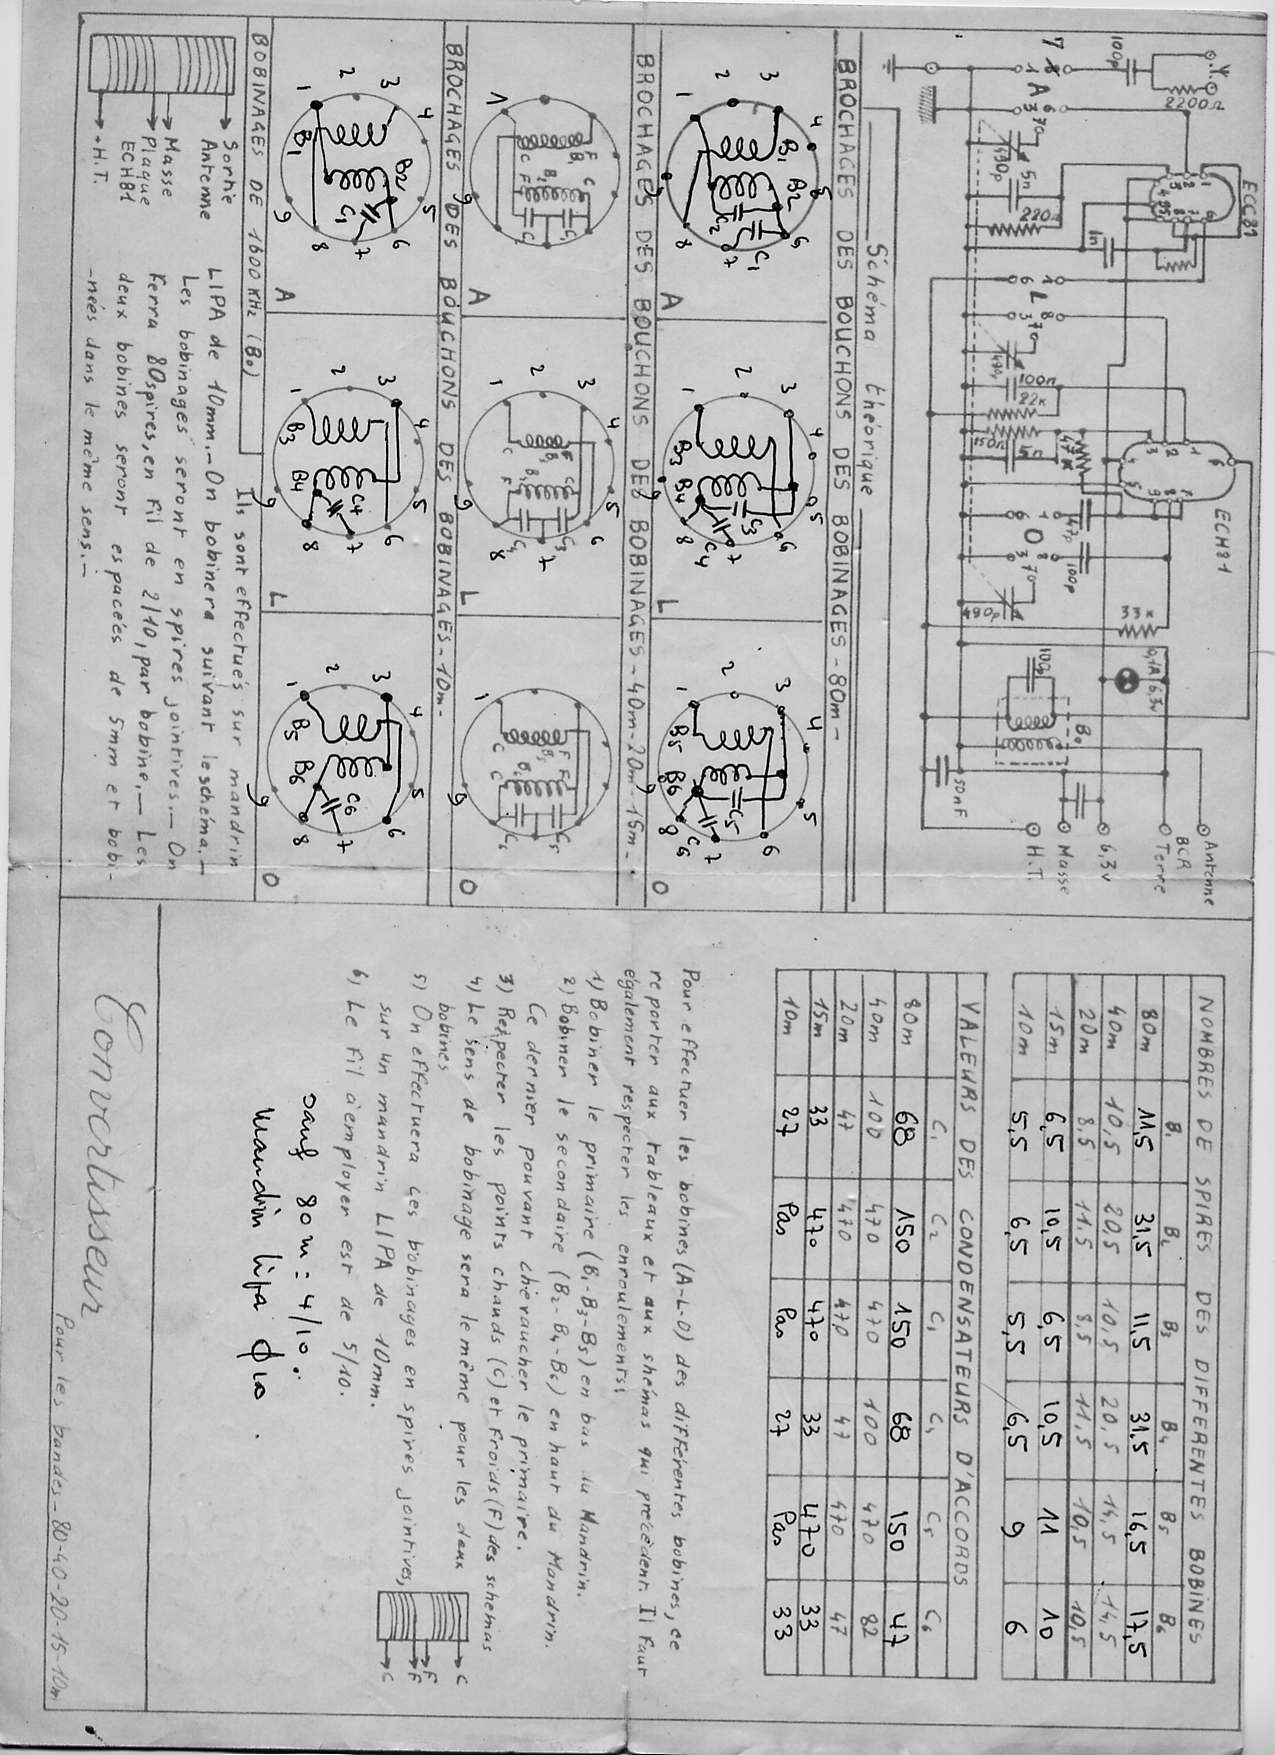 Antenne
BCR
Terre
6,3v
Masse
H.T.
ECC81
ECH81
100p
2200Ω
490p
5n
220Ω
1n
A
L
O
490p
100n
22K
150Ω
5n
47K
47p
100p
490p
33K
0,1A 6,3v
10p
B0
50nF
Schéma théorique
BROCHAGES DES BOUCHONS DES BOBINAGES - 80m -
B1 B2 C2 C1 A
B3 B4 C3 C4 L
B5 B6 C5 C6 O
BROCHAGES DES BOUCHONS DES BOBINAGES - 40m - 20m - 15m -
A
L
O
BROCHAGES DES BOUCHONS DES BOBINAGES - 10m -
B1 B2 C1 A
B3 B4 C4 L
B5 B6 C6 O
BOBINAGES DE 1600 KHz (B0)
Sortie
Antenne
Masse
Plaque
ECH81
+H.T.
Ils sont effectués sur mandrin
LIPA de 10mm. - On bobinera suivant le schéma. -
Les bobinages seront en spires jointives. - On
Ferra 80 spires, en Fil de 2/10, par bobine. - Les
deux bobines seront espacées de 5mm et bobi-
-nées dans le même sens. -
NOMBRES DE SPIRES DES DIFFERENTES BOBINES
B1 B2 B3 B4 B5 B6
80m 11,5 31,5 11,5 31,5 16,5 17,5
40m 10,5 20,5 10,5 20,5 14,5 14,5
20m 8,5 11,5 8,5 11,5 10,5 10,5
15m 6,5 10,5 6,5 10,5 11 10
10m 5,5 6,5 5,5 6,5 9 6
VALEURS DES CONDENSATEURS D'ACCORDS
C1 C2 C3 C4 C5 C6
80m 68 150 150 68 150 47
40m 100 470 470 100 470 82
20m 47 470 470 47 470 47
15m 33 470 470 33 470 33
10m 27 Pas Pas 27 Pas 33
Pour effectuer les bobines (A-L-O) des différentes bobines, se
reporter aux tableaux et aux shémas qui précèdent. Il Faut
également respecter les enroulements:
1) Bobiner le primaire (B1-B3-B5) en bas du Mandrin.
2) Bobiner le secondaire (B2-B4-B6) en haut du Mandrin.
Ce dernier pouvant chevaucher le primaire.
3) Respecter les points chauds (C) et Froids (F) des schemas
4) Le sens de bobinage sera le même pour les deux
bobines
5) On effectuera ces bobinages en spires jointives,
sur un mandrin LIPA de 10mm.
6) Le Fil à employer est de 5/10.
C
F
F
C
sauf 80m : 4/10.
Mandrin lipa ϕ10.
Convertisseur
Pour les bandes - 80-40-20-15-10m